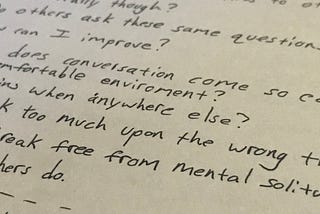 though? to
others ask these same questions
can I improve?
does conversation come so
mfortable enviroment?
when anywhere else?
too much upon the wrong th
reak free from mental solitu
hers do.